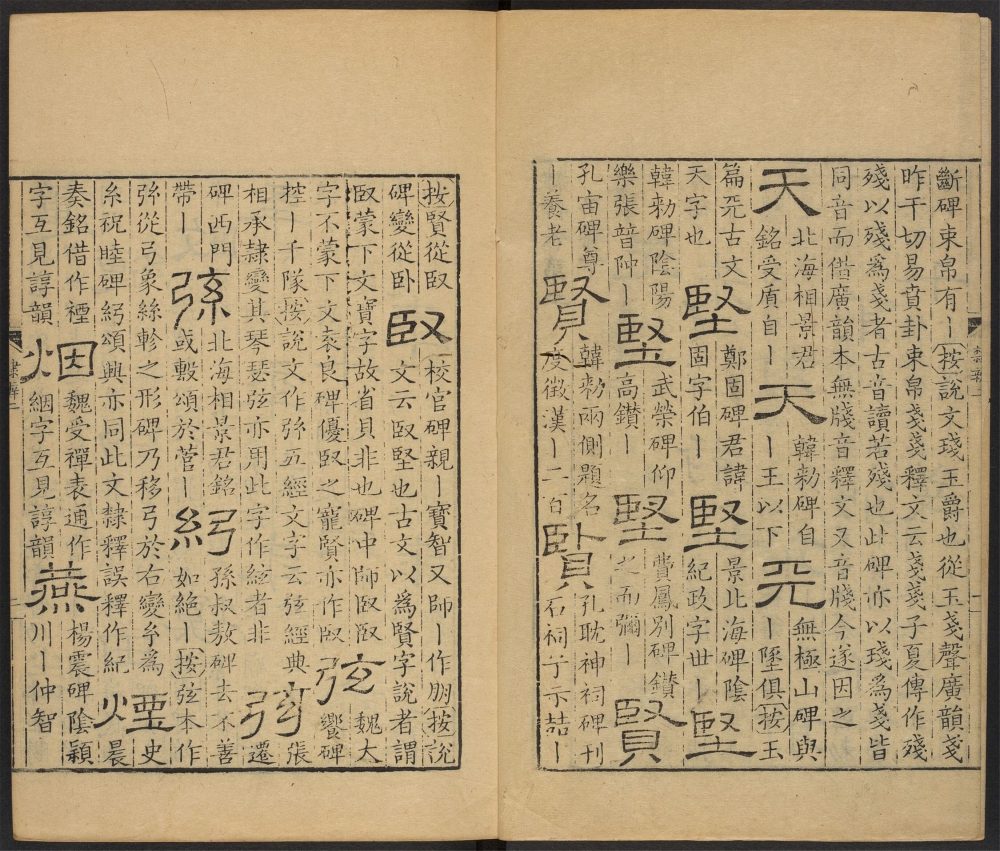 斷碑束帛有丨按說文琖玉爵也從玉戔聲廣韻戔
昨干切易賁卦束帛戔戔釋文云戔戔子夏傳作殘
殘以殘爲戔者古音讀若殘也此碑亦以琖爲戔皆
同音而借廣韻本無牋音釋文又音牋今遂因之
天 北海相景君銘受盾自丨 天 韓勑碑自丨王以下 兲 無極山碑與丨墬俱按玉
篇兲古文天字也 堅 鄭固碑君諱固字伯丨 堅 景北海碑陰紀政字世丨 堅
韓勑碑陰陽樂張普丨 堅 武榮碑仰高鑽丨 堅 費鳳別碑鑽之而彌丨 賢
孔宙碑尊丨養老 賢 韓勑兩側題名度徵漢丨二百 賢 孔耽神祠碑刊石祠示喆丨
按賢從臤碑變從卧 臤 校官碑親丨寶智又師丨作朋按說文云臤堅也古文以爲賢字說者謂
臤蒙下文寶字故省貝非也碑中師臤臤字不蒙下文袁良碑優臤之寵賢亦作臤 弦 魏大饗碑
控丨千隊按說文作弦五經文字云弦經典相承隸變其琴瑟弦亦用此字作絃者非 弦 張遷
碑西門帶丨 弦 北海相景君銘或轂頌於管丨 紭 孫叔敖碑去不善如絶丨按弦本作
弦從弓象絲軫之形碑乃移弓於右變糸爲糸祝睦碑紭頌興亦同此文隸釋誤釋作紀 煙 史晨
奏銘借作禋字互見諄韻 烟 魏受禪表通作絪字互見諄韻 燕 楊震碑陰穎川丨仲智